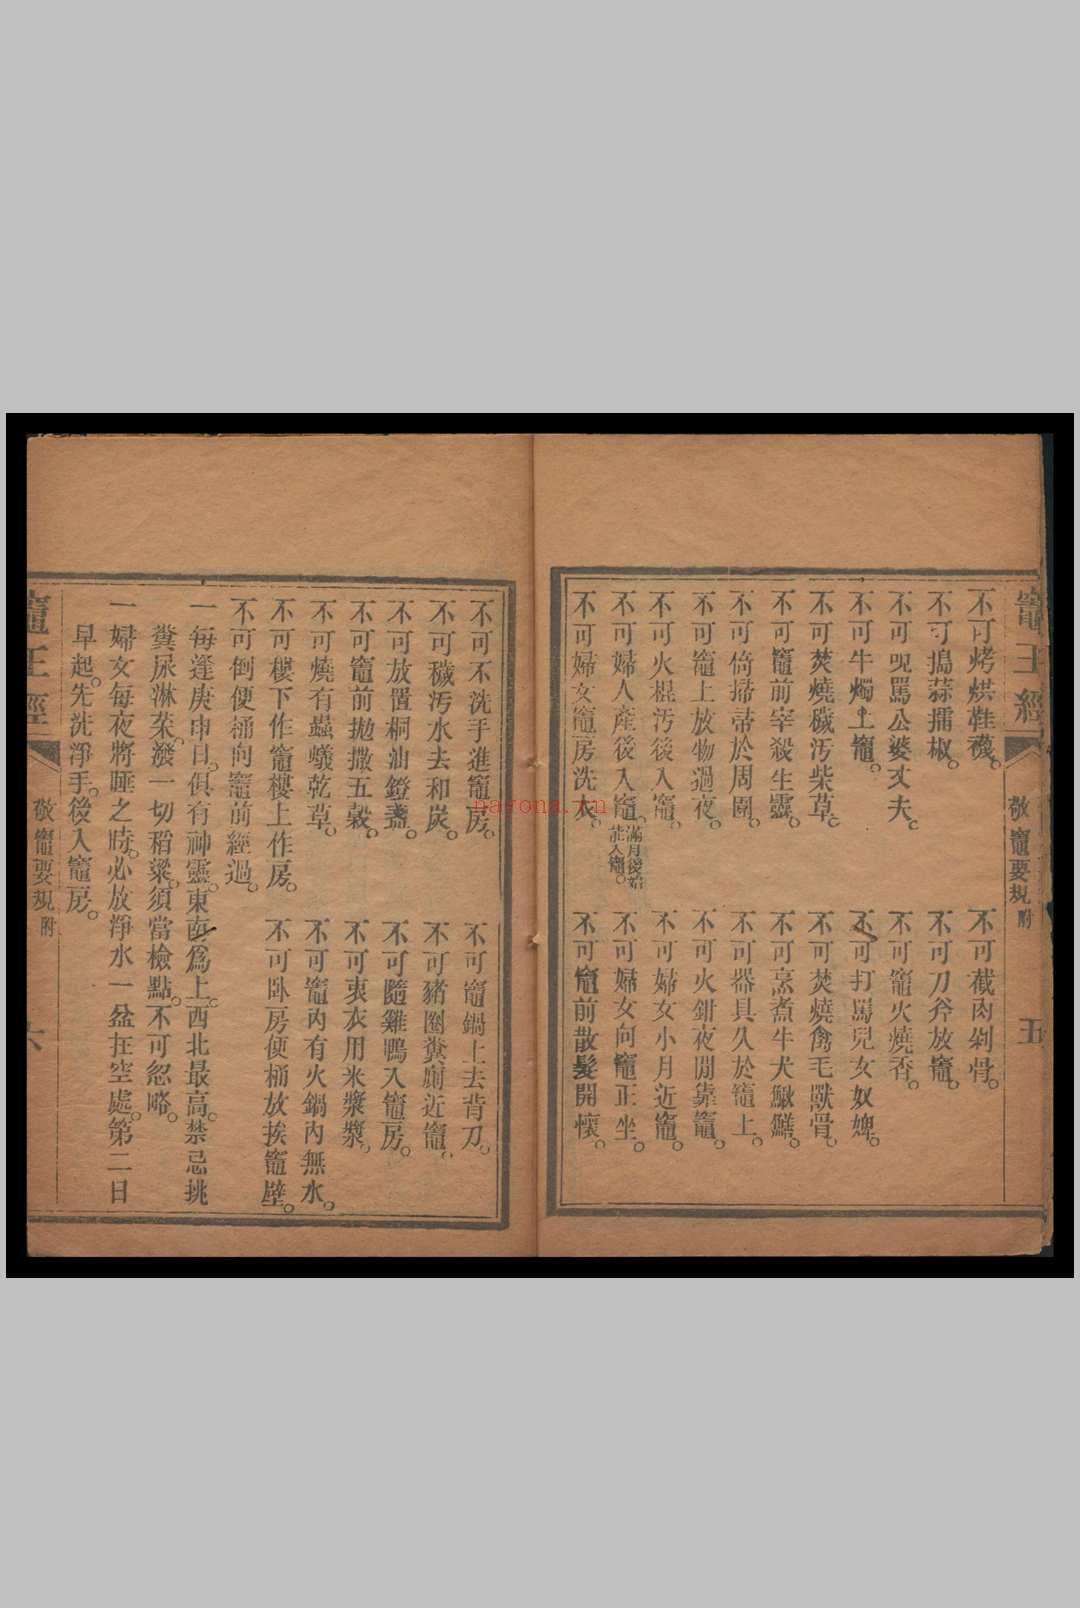 竈王經
敬竈要規附
五
不可烤烘鞋襪。
不可截肉剁骨。
不可搗蒜擂椒。
不可刀斧放竈。
不可咒罵公婆丈夫。
不可竈火燒香。
不可牛燭上竈。
不可打罵兒女奴婢。
不可焚燒穢汚柴草。
不可焚燒禽毛獸骨。
不可竈前宰殺生靈。
不可烹煮牛犬鰍鱔。
不可倚掃箒於周圍。
不可器具久於竈上。
不可竈上放物過夜。
不可火鉗夜間靠竈。
不可火棍汚後入竈。
不可婦女小月近竈。
不可婦人產後入竈。滿月後始
並入竈。
不可婦女向竈正坐。
不可婦女竈房洗衣。
不可竈前散髮開懷。
不可不洗手進竈房。
不可竈鍋上去背刀。
不可穢汚水去和炭。
不可豬圈糞廟近竈。
不可放置桐油鐙盞。
不可隨雞鴨入竈房。
不可竈前拋撒五穀。
不可衷衣用米漿漿。
不可燒有蟲蟻乾草。
不可竈內有火鍋內無水。
不可樓下作竈樓上作房。
不可臥房便桶放挨竈壁。
不可倒便桶向竈前經過。
一每逢庚申日。俱有神靈。東南爲上。西北最高。禁忌挑
糞尿淋菜。潑一切稻粱。須當檢點。不可忽略。
一婦女每夜將睡之時。必放淨水一盆在空處。第二日
早起。先洗淨手。後入竈房。
竈王經
敬竈要規附
六
nayona.cn